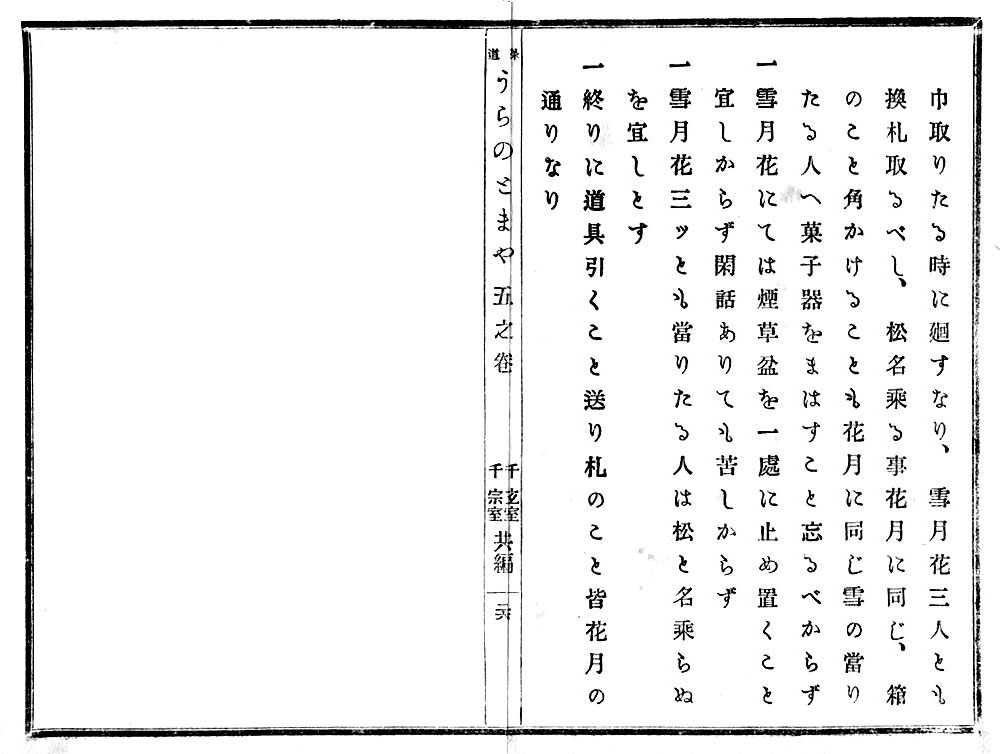 巾取りたる時に廻すなり、雪月花三人とも
換札取るべし、松名乘る事花月に同じ、箱
のこと角かけることも花月に同じ雪の當り
たる人へ菓子器をまはすこと忘るべからず
一雪月花にては煙草盆を一處に止め置くこと
宜しからず閑話ありても苦しからず
一雪月花三ッとも當りたる人は松と名乘らぬ
を宜しとす
一終りに道具引くこと送り札のこと皆花月の
通りなり
茶道 うらのとまや 五之卷 千玄室 千宗室 共編 二六